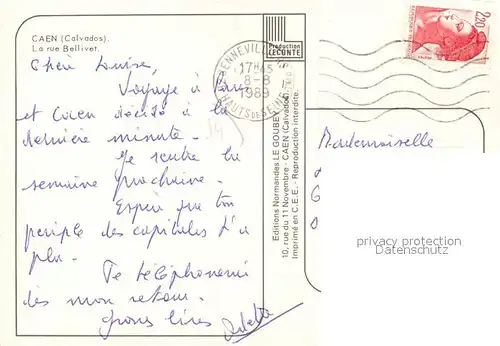 CAEN (Calvados).
La rue Bellivet.
Chère Louise,
Voyage à Paris
et Caen décidé à la
dernière minute.
Je rentre la
semaine prochaine.
Espère que ton
périple des capitales t'a
plu.
Te téléphonerai
dès mon retour.
Gros bises
Production
LECONTE
GENNEVILLIERS
17H45
8-8
1989
HAUTS DE SEINE
2,20
Editions Normandes LE GOUBEY
10, rue du 11 Novembre - CAEN (Calvados)
Imprimé en C.E.E. - Reproduction interdite.
Mademoiselle
privacy protection
Datenschutz